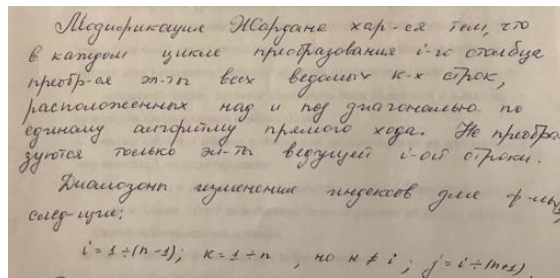 Модификация Жордана хар-ся тем, что
в каждом цикле преобразования i-го столбца
преобр-ся эл-ты всех ведомых к-х строк,
расположенных над и под диагональю по
единому алгоритму прямого хода. Не преобра
зуются только эл-ты ведущей i-ой строки.
Диапазоны изменения индексов для ф-лы
след-щие:
i = 1 ÷ (n-1); к = 1 ÷ n , но к ≠ i ; j = i ÷ (n+1)